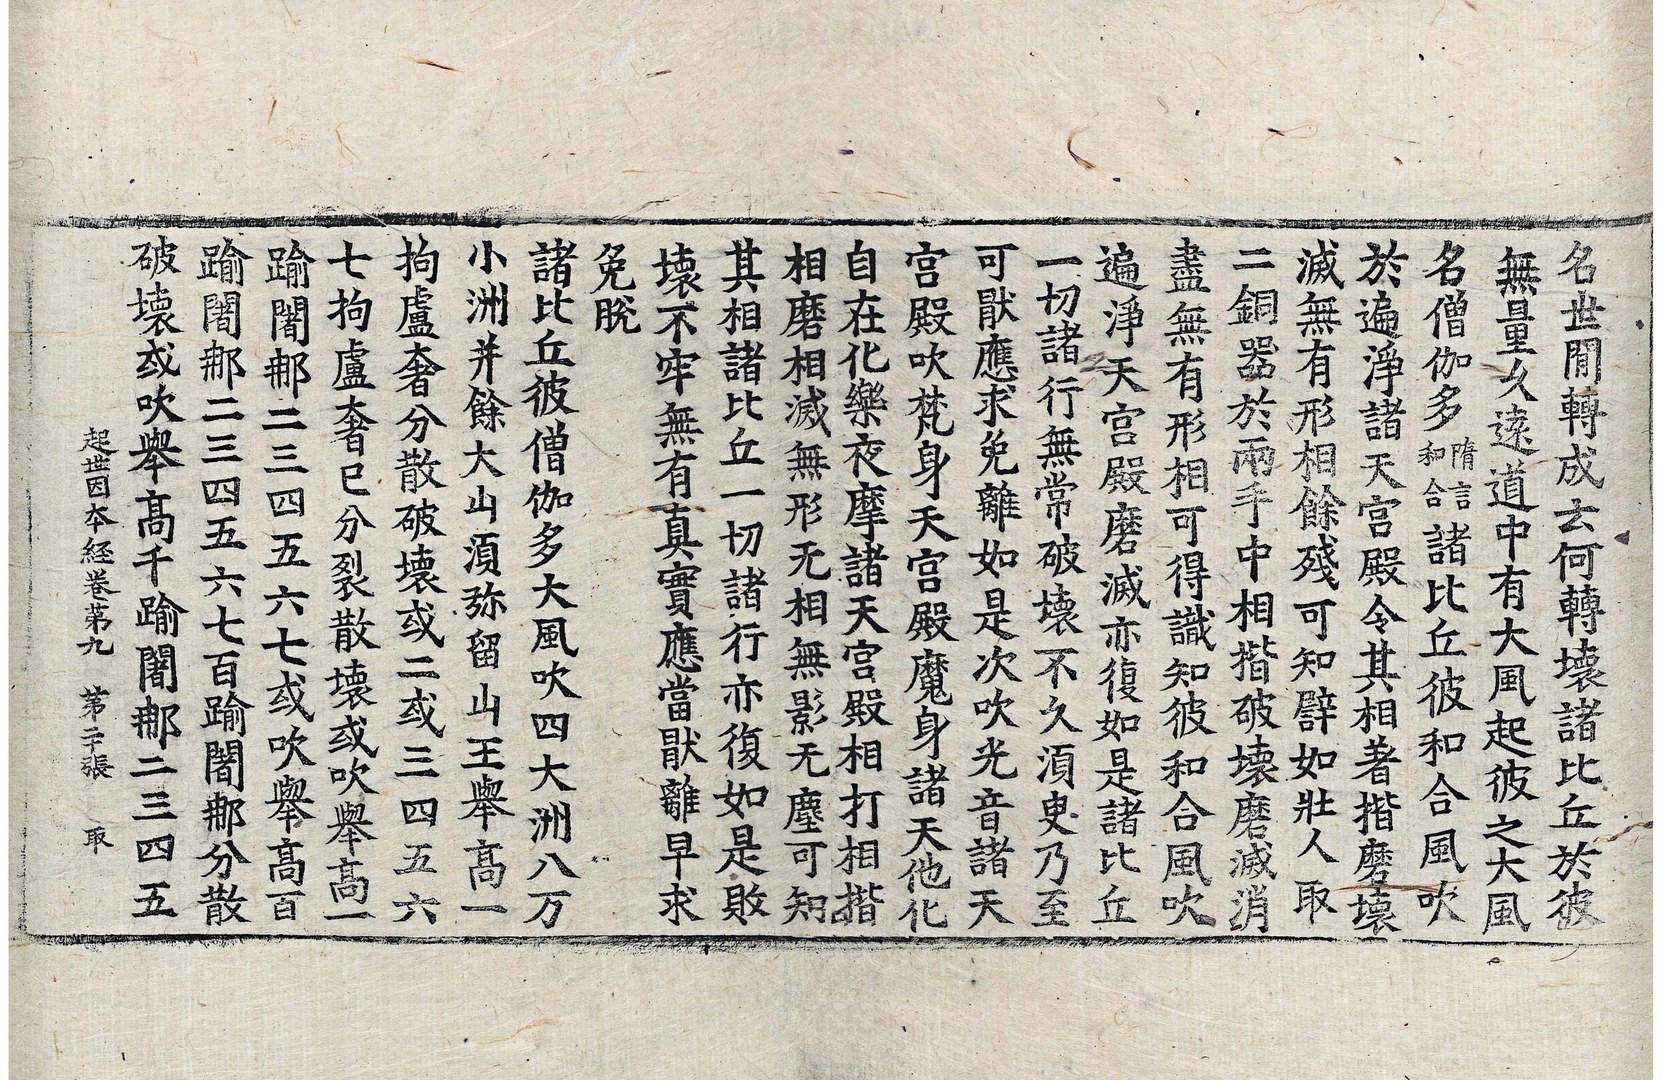 名世閒轉成云何轉壞諸比丘於彼
無量久遠道中有大風起彼之大風
名僧伽多隋言和合諸比丘彼和合風吹
於遍淨諸天宮殿令其相著揩磨壞
滅無有形相餘殘可知譬如壯人取
二銅器於兩手中相揩破壞磨滅消
盡無有形相可得識知彼和合風吹
遍淨天宮殿磨滅亦復如是諸比丘
一切諸行無常破壞不久須臾乃至
可猒應求免離如是次吹光音諸天
宮殿吹梵身天宮殿魔身諸天他化
自在化樂夜摩諸天宮殿相打相揩
相磨相滅無形无相無影无塵可知
其相諸比丘一切諸行亦復如是敗
壞不牢無有真實應當猒離早求
免脫
諸比丘彼僧伽多大風吹四大洲八万
小洲并餘大山須弥留山王舉高一
拘盧奢分散破壞或二或三四五六
七拘盧奢已分裂散壞或吹舉高一
踰闍那二三四五六七或吹舉高百
踰闍那二三四五六七百踰闍那分散
破壞或吹舉高千踰闍那二三四五
起世因本経卷第九 第二張 取